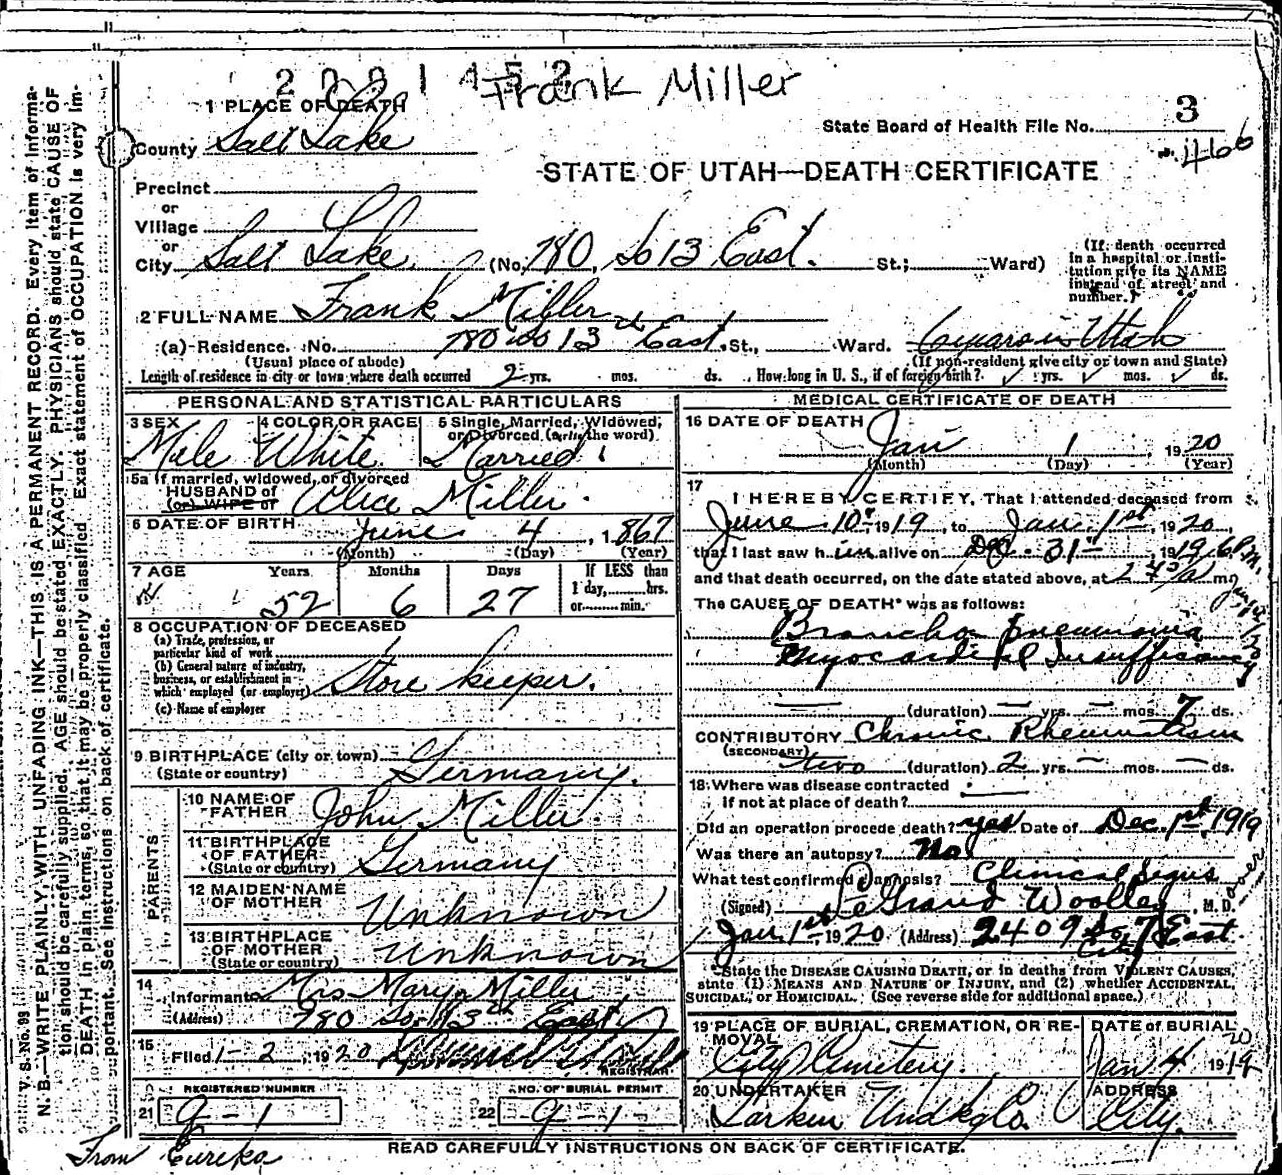 Frank Miller
1 PLACE OF DEATH
3
State Board of Health File No.
466
County Salt Lake
STATE OF UTAH—DEATH CERTIFICATE
Precinct
or
Village
or
City Salt Lake (No. 780, So 13 East. St.; Ward)
(If death occurred in a hospital or institution give its NAME instead of street and number.)
2 FULL NAME Frank Miller
(a) Residence. No. 780 So 13 East. St., Ward. Utah
(Usual place of abode) (If non-resident give city or town and State)
Length of residence in city or town where death occurred 2 yrs. mos. ds. How long in U. S., if of foreign birth? yrs. mos. ds.
PERSONAL AND STATISTICAL PARTICULARS
3 SEX Male
4 COLOR OR RACE White
5 Single, Married, Widowed, or Divorced (write the word) Married
5a If married, widowed, or divorced
HUSBAND of
(or) WIFE of Alice Miller.
6 DATE OF BIRTH June 4, 1867
(Month) (Day) (Year)
7 AGE Years Months Days If LESS than
1 day, hrs.
or min.
52 6 27
8 OCCUPATION OF DECEASED
(a) Trade, profession, or
particular kind of work
(b) General nature of industry,
business, or establishment in
which employed (or employer) Store keeper.
(c) Name of employer
9 BIRTHPLACE (city or town)
(State or country) Germany.
PARENTS
10 NAME OF FATHER John Miller
11 BIRTHPLACE OF FATHER (State or country) Germany
12 MAIDEN NAME OF MOTHER Unknown
13 BIRTHPLACE OF MOTHER (State or country) Unknown
14 Informant Mrs Mary Miller
(Address) 780 So. 13th East
15 Filed 1-2, 1920
REGISTRAR
REGISTERED NUMBER NO. OF BURIAL PERMIT
21 9-1 22 9-1
MEDICAL CERTIFICATE OF DEATH
16 DATE OF DEATH Jan 1 1920
(Month) (Day) (Year)
17 I HEREBY CERTIFY, That I attended deceased from
June 10, 1919, to Jan. 1st 1920,
that I last saw him alive on Dec. 31st, 1919 6 P.m.
and that death occurred, on the date stated above, at 2 45 a m
The CAUSE OF DEATH* was as follows:
Broncho Pneumonia
Myocardial Insufficiency
(duration) yrs. mos. 7 ds.
CONTRIBUTORY Chronic Rheumatism
(SECONDARY) two (duration) 2 yrs. mos. ds.
18 Where was disease contracted
if not at place of death?
Did an operation precede death? yes Date of Dec. 1st, 1919
Was there an autopsy? No
What test confirmed diagnosis? Clinical Signs
(Signed) LeGrand Woolley, M. D.
Jan. 1st, 1920 (Address) 2409 So. 7 East
City
*State the DISEASE CAUSING DEATH, or in deaths from VIOLENT CAUSES,
state (1) MEANS AND NATURE OF INJURY, and (2) whether ACCIDENTAL,
SUICIDAL, or HOMICIDAL. (See reverse side for additional space.)
19 PLACE OF BURIAL, CREMATION, OR REMOVAL City Cemetery.
DATE OF BURIAL Jan 4 1920
20 UNDERTAKER Larkin Undtkg Co.
ADDRESS City.
READ CAREFULLY INSTRUCTIONS ON BACK OF CERTIFICATE.
From Eureka
V. S. No. 99
N. B.—WRITE PLAINLY, WITH UNFADING INK—THIS IS A PERMANENT RECORD. Every item of information should be carefully supplied. AGE should be stated EXACTLY. PHYSICIANS should state CAUSE OF DEATH in plain terms, so that it may be properly classified. Exact statement of OCCUPATION is very important. See instructions on back of certificate.